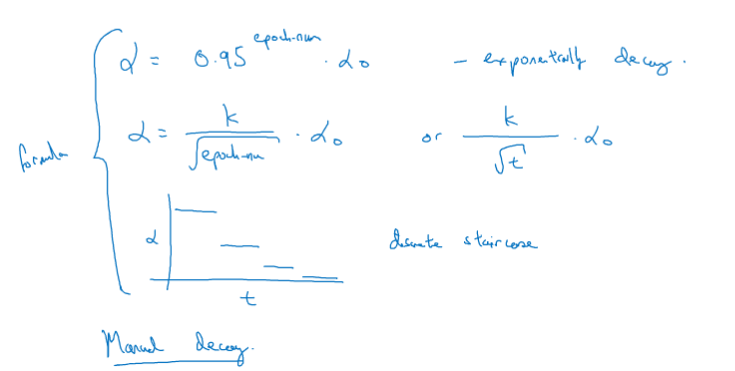 α = 0.95^epoch-num · α₀ – exponentially decay.
formula
α = k / √epoch-num · α₀ or k / √t · α₀
α discrete staircase
t
Manual decay.